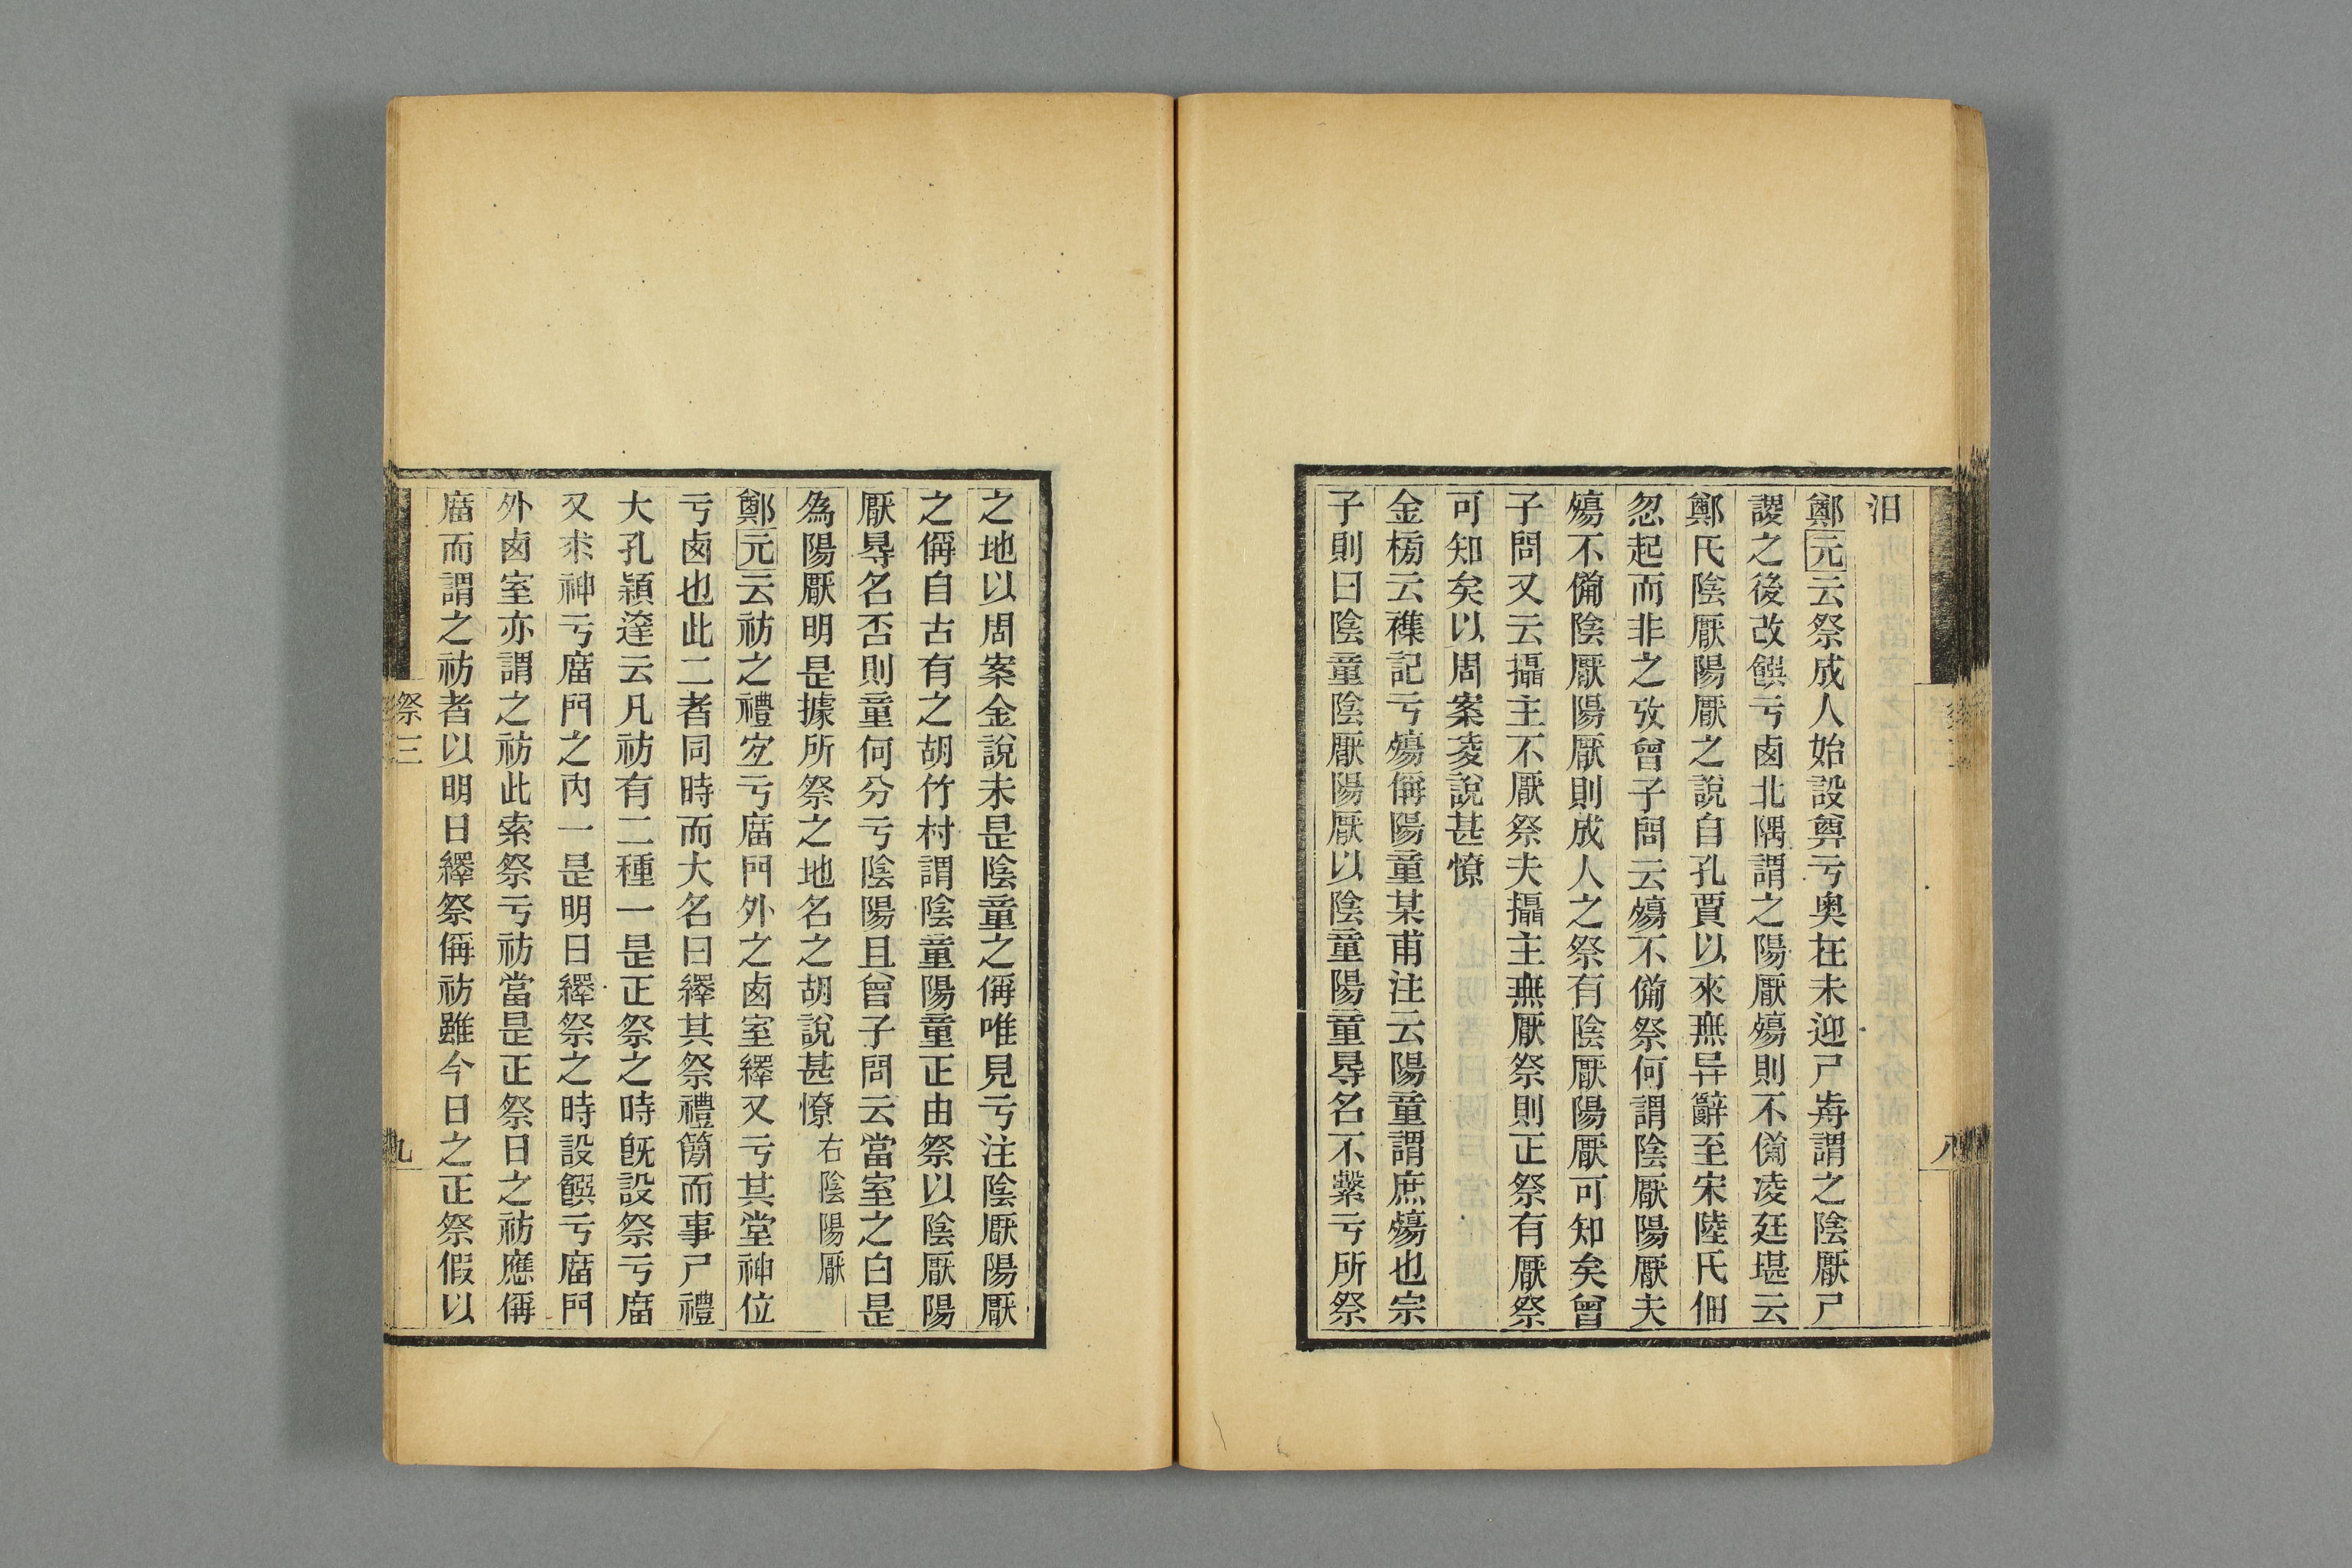 汨
鄭元云祭成人始設奠亏奥在未迎尸歬謂之陰厭尸
謖之後改饌亏卥北隅謂之陽厭殤則不僃凌廷堪云
鄭氏陰厭陽厭之說自孔賈以來無异辭至宋陸氏佃
忽起而非之攷曾子問云殤不僃祭何謂陰厭陽厭夫
殤不僃陰厭陽厭則成人之祭有陰厭陽厭可知矣曾
子問又云攝主不厭祭夫攝主無厭祭則正祭有厭祭
可知矣以周案凌說甚憭
金榜云襍記亏殤偁陽童某甫注云陽童謂庶殤也宗
子則曰陰童陰厭陽厭以陰童陽童㝵名不繫亏所祭
之地以周案金說未是陰童之偁唯見亏注陰厭陽厭
之偁自古有之胡竹村謂陰童陽童正由祭以陰厭陽
厭㝵名否則童何分亏陰陽且曾子問云當室之白是
為陽厭明是據所祭之地名之胡說甚憭 右陰陽厭
鄭元云祊之禮宐亏庿門外之卥室繹又亏其堂神位
亏卥也此二者同時而大名曰繹其祭禮𥳑而事尸禮
大孔穎達云凡祊有二種一是正祭之時旣設祭亏庿
又求神亏庿門之內一是明日繹祭之時設饌亏庿門
外卥室亦謂之祊此索祭亏祊當是正祭日之祊應偁
庿而謂之祊者以明日繹祭偁祊雖今日之正祭假以
祭三
九
八